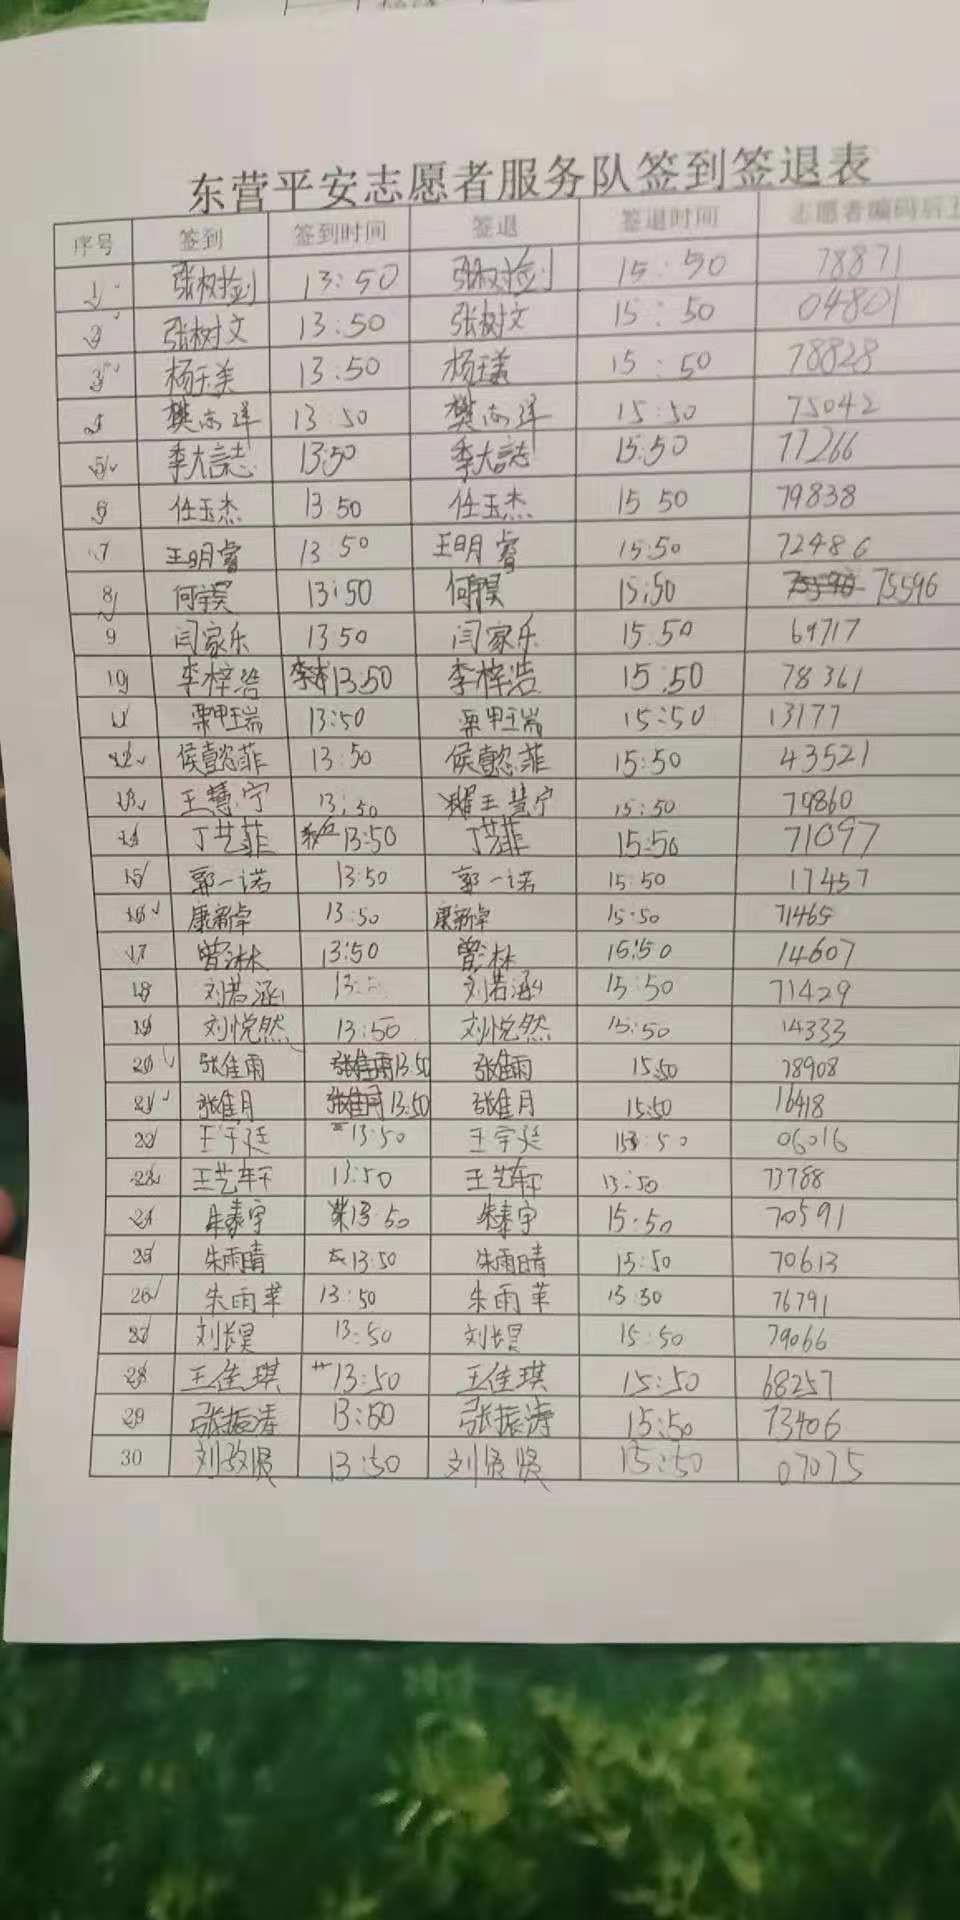 东营平安志愿者服务队签到签退表
序号 签到 签到时间 签退 签退时间 志愿者编码后
1 张树俭 13:50 张树俭 15:50 78871
2 张树文 13:50 张树文 15:50 04801
3 杨玉美 13:50 杨玉美 15:50 78828
4 樊志洋 13:50 樊志洋 15:50 75042
5 季大誌 13:50 季大誌 15:50 77266
6 任玉杰 13 50 任玉杰 15 50 79838
7 王明睿 13 50 王明睿 15:50 72486
8 13:50 15:50 75596
9 闫家乐 13 50 闫家乐 15.50 69717
10 李梓浩 13:50 李梓浩 15:50 78361
11 栗甲瑞 13:50 栗甲瑞 15:50 13177
12 侯懿菲 13:50 侯懿菲 15:50 43521
13 王慧宁 13:50 王慧宁 15:50 79860
14 丁艺菲 13:50 丁艺菲 15:50 71097
15 郭一诺 13:50 郭一诺 15:50 17457
16 康新卓 13:50 康新卓 15:50 71465
17 曾沐林 13:50 曾沐林 15:50 14607
18 刘若涵 13: 刘若涵 15:50 71429
19 刘悦然 13:50 刘悦然 15:50 14333
20 张佳雨 13:50 张佳雨 15:50 78908
21 张佳月 13:50 张佳月 15:50 16418
22 王宇廷 13:50 王宇廷 15:50 06016
23 王艺轩 13:50 王艺轩 15:50 73788
24 朱泰宇 13:50 朱泰宇 15:50 70591
25 朱雨晴 13:50 朱雨晴 15:50 70613
26 朱雨苹 13:50 朱雨苹 15:50 76791
27 13:50 15:50 79066
28 王佳琪 13:50 王佳琪 15:50 68257
29 张振涛 13:50 张振涛 15:50 73406
30 13:50 15:50 07075